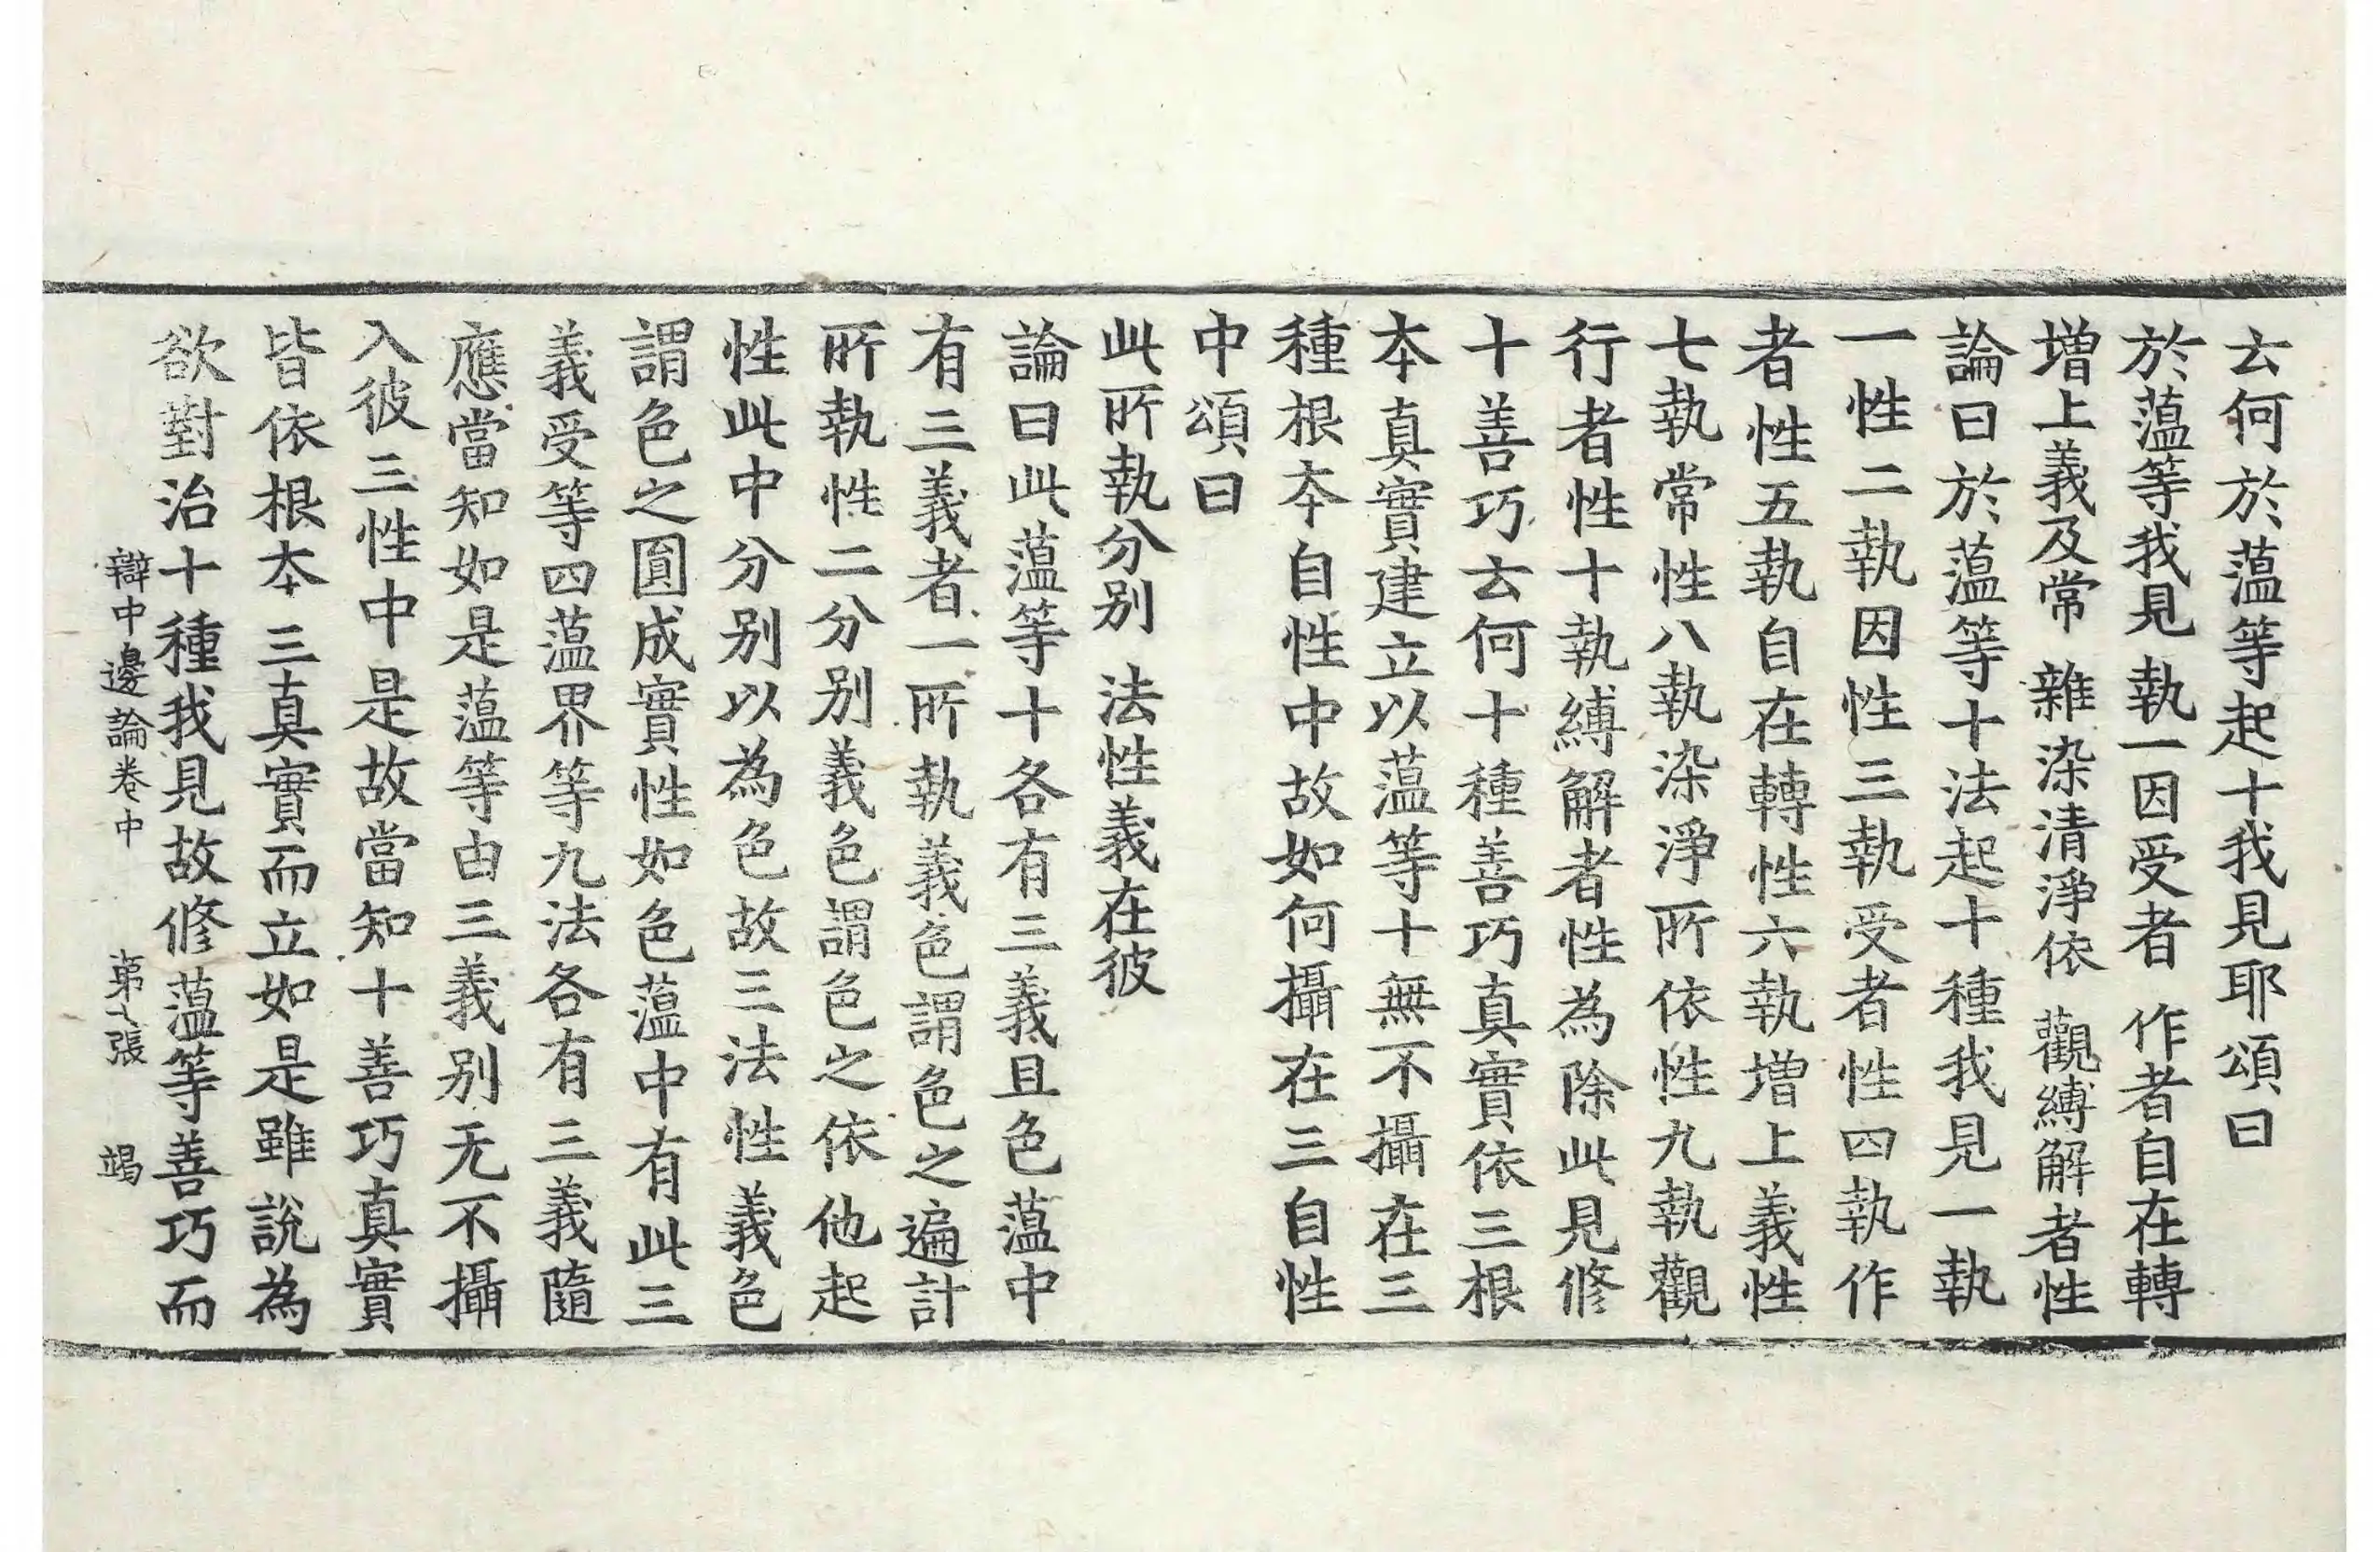 云何於薀等起十我見耶頌曰
於薀等我見 執一因受者 作者自在轉
增上義及常 雜染清淨依 觀縛解者性
論曰於薀等十法起十種我見一執
一性二執因性三執受者性四執作
者性五執自在轉性六執增上義性
七執常性八執染淨所依性九執觀
行者性十執縛解者性為除此見修
十善巧云何十種善巧真實依三根
本真實建立以薀等十無不攝在三
種根本自性中故如何攝在三自性
中頌曰
此所執分別 法性義在彼
論曰此薀等十各有三義且色薀中
有三義者一所執義色謂色之遍計
所執性二分別義色謂色之依他起
性此中分別以為色故三法性義色
謂色之圓成實性如色薀中有此三
義受等四薀界等九法各有三義隨
應當知如是薀等由三義別无不攝
入彼三性中是故當知十善巧真實
皆依根本三真實而立如是雖說為
欲對治十種我見故修薀等善巧而
辯中邊論卷中 第七張 竭